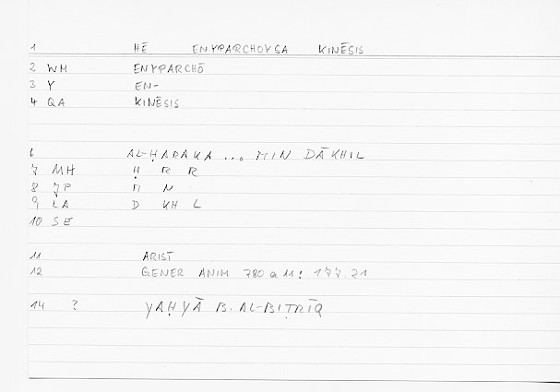 1 HĒ ENYPARCHOYSA KINĒSIS
2 WM ENYPARCHŌ
3 Y EN-
4 QA KINĒSIS
6 AL-ḤARAKA ... MIN DĀKHIL
7 MH Ḥ R R
8 JP M N
9 LA D KH L
10 SE
11 ARIST
12 GENER ANIM 780 a 11: 177.21
14 ? YAḤYĀ B. AL-BIṬRĪQ